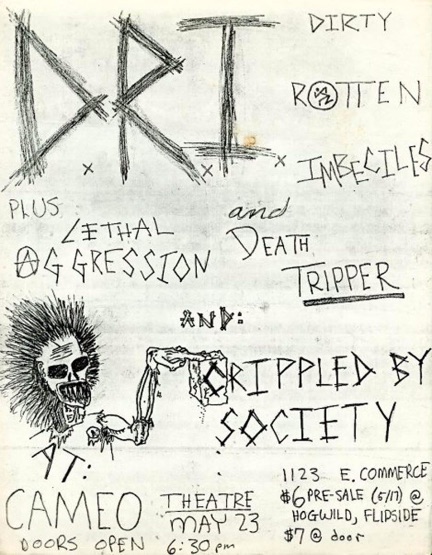 DRI
DIRTY
ROTTEN
IMBECILES
PLUS
LETHAL
AGGRESSION
and
DEATH
TRIPPER
AND:
CRIPPLED BY
SOCIETY
AT:
CAMEO THEATRE
MAY 23
DOORS OPEN 6:30 pm
1123 E. COMMERCE
$6 PRE-SALE (5/17) @
HOGWILD, FLIPSIDE
$7 @ door